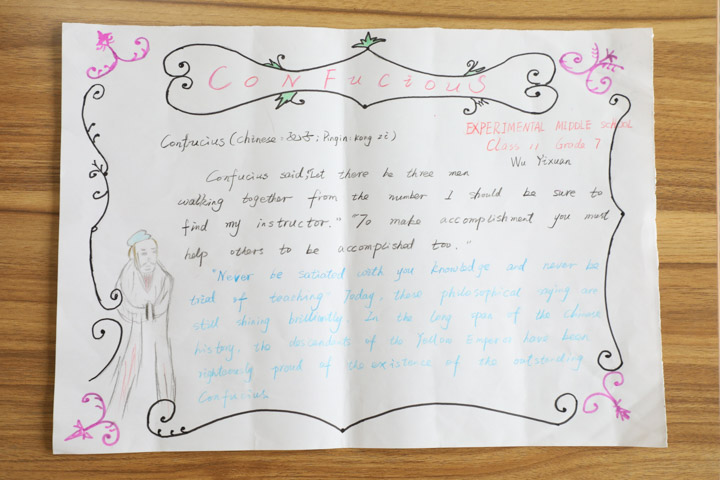 CoNFucioUS
EXPERIMENTAL MIDDLE School
Class 11 Grade 7
Wu Yixuan
Confucius (Chinese: 孔子; Pinyin: Kong zi)
Confucius said, "Let there be three men
walking together from the number I should be sure to
find my instructor." "To make accomplishment you must
help others to be accomplished too."
"Never be satiated with you knowledge and never be
tried of teaching" Today, these philosophical saying are
still shining brilliantly. In the long span of the Chinese
history, the descendants of the Yellow Emperor have been
righteously proud of the existence of the outstanding
Confucius.